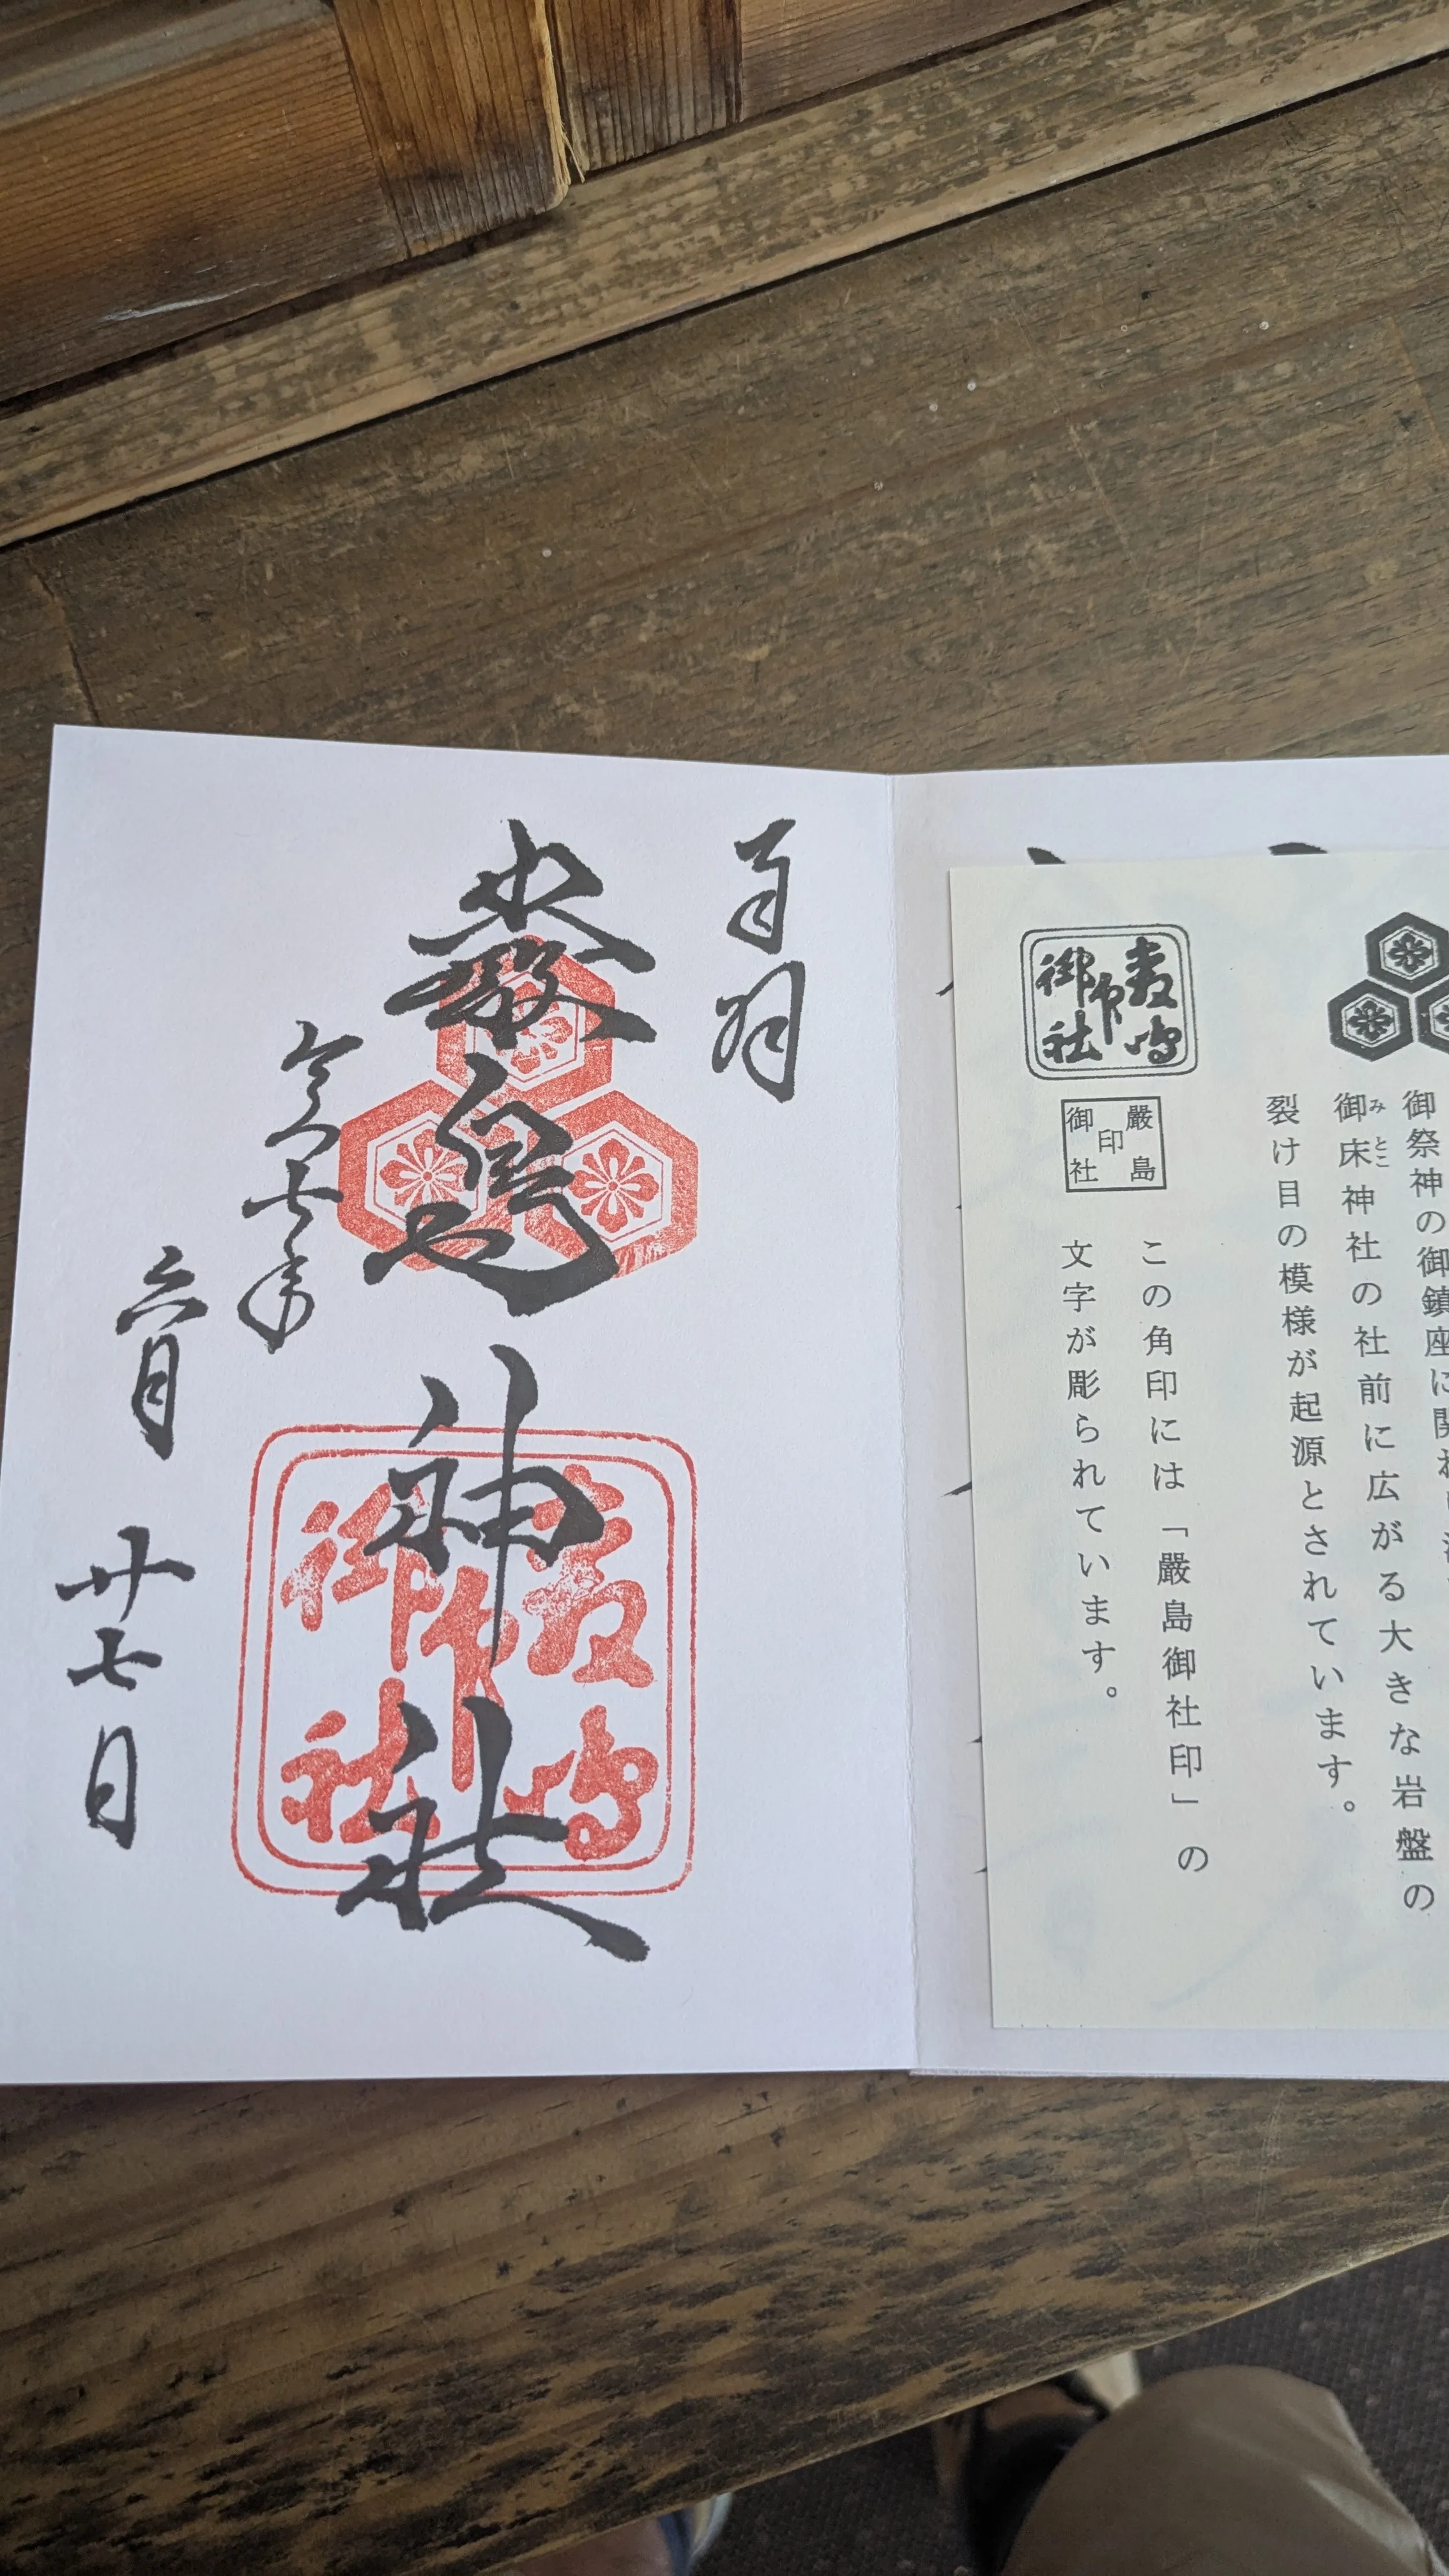 御祭神の御鎮座に
御床神社の社前に広がる大きな岩盤の
みとこ
裂け目の模様が起源とされています。
嚴島
印
御社
嚴島
印
御社
この角印には「嚴島御社印」の
文字が彫られています。
嚴島神社
嚴島
印
御社
令和七年
六月
廿七日